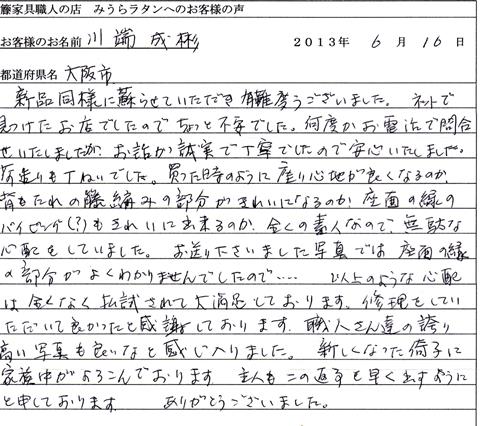 籐家具職人の店 みうらラタンへのお客様の声
お客様のお名前 川端成彬 2013年 6月 16日
都道府県名 大阪市
新品同様に蘇らせていただき有難うございました。ネットで
見つけたお店でしたのでちょっと不安でした。何度かお電話で問合
せいたしましたが、お話が誠実で丁寧でしたので安心いたしました。
荷造りも丁ねいでした。買った時のように座り心地が良くなるのか
背もたれの籐編みの部分がきれいになるのか 座面の縁の
パイピング(?)もきれいに出来るのか、全くの素人なので無駄な
心配をしていました。お送り下さいました写真では座面の縁
の部分がよくわかりませんでしたので…… 以上のような心配
は全くなく払試されて大満足しております。修理をしてい
ただいて良かったと感謝しております。職人さん達の誇り
高い写真も良いなと感じ入りました。新しくなった椅子に
家族中がよろこんでおります。主人もこの返事を早く出すように
と申しております。ありがとうございました。